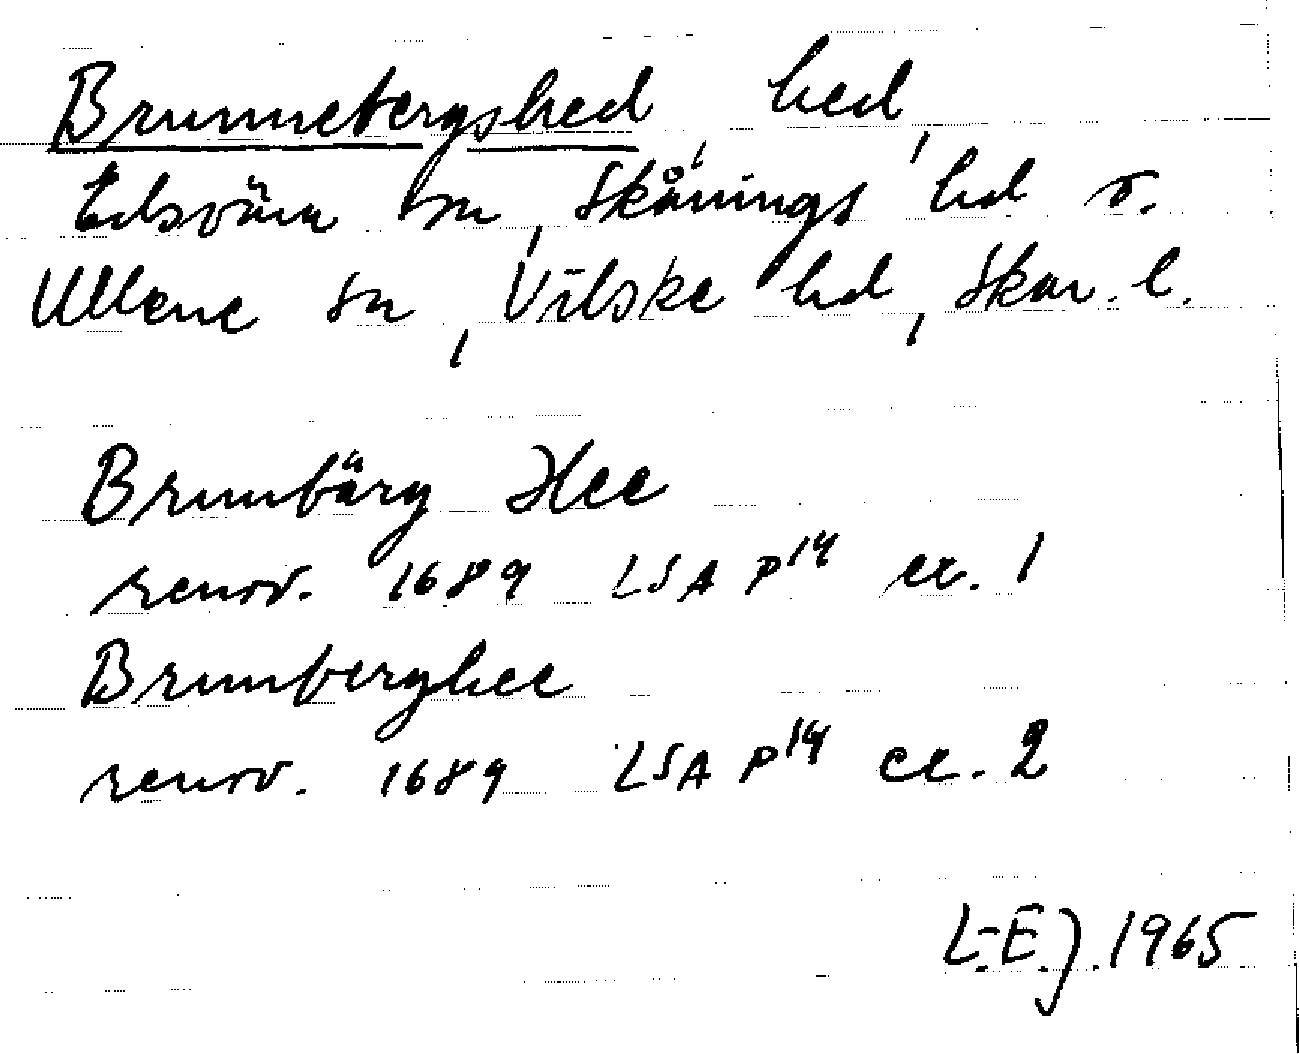 Brunnebergshed, hed,
Edsvära sn, Skånings hd o.
Ullene sn, Vilske hd, Skar. l.
Brunbärg Hee
renov. 1689 LSA P14 ex. 1
Brunberghee
renov. 1689 LSA P14 ex. 2
L-E.J. 1965